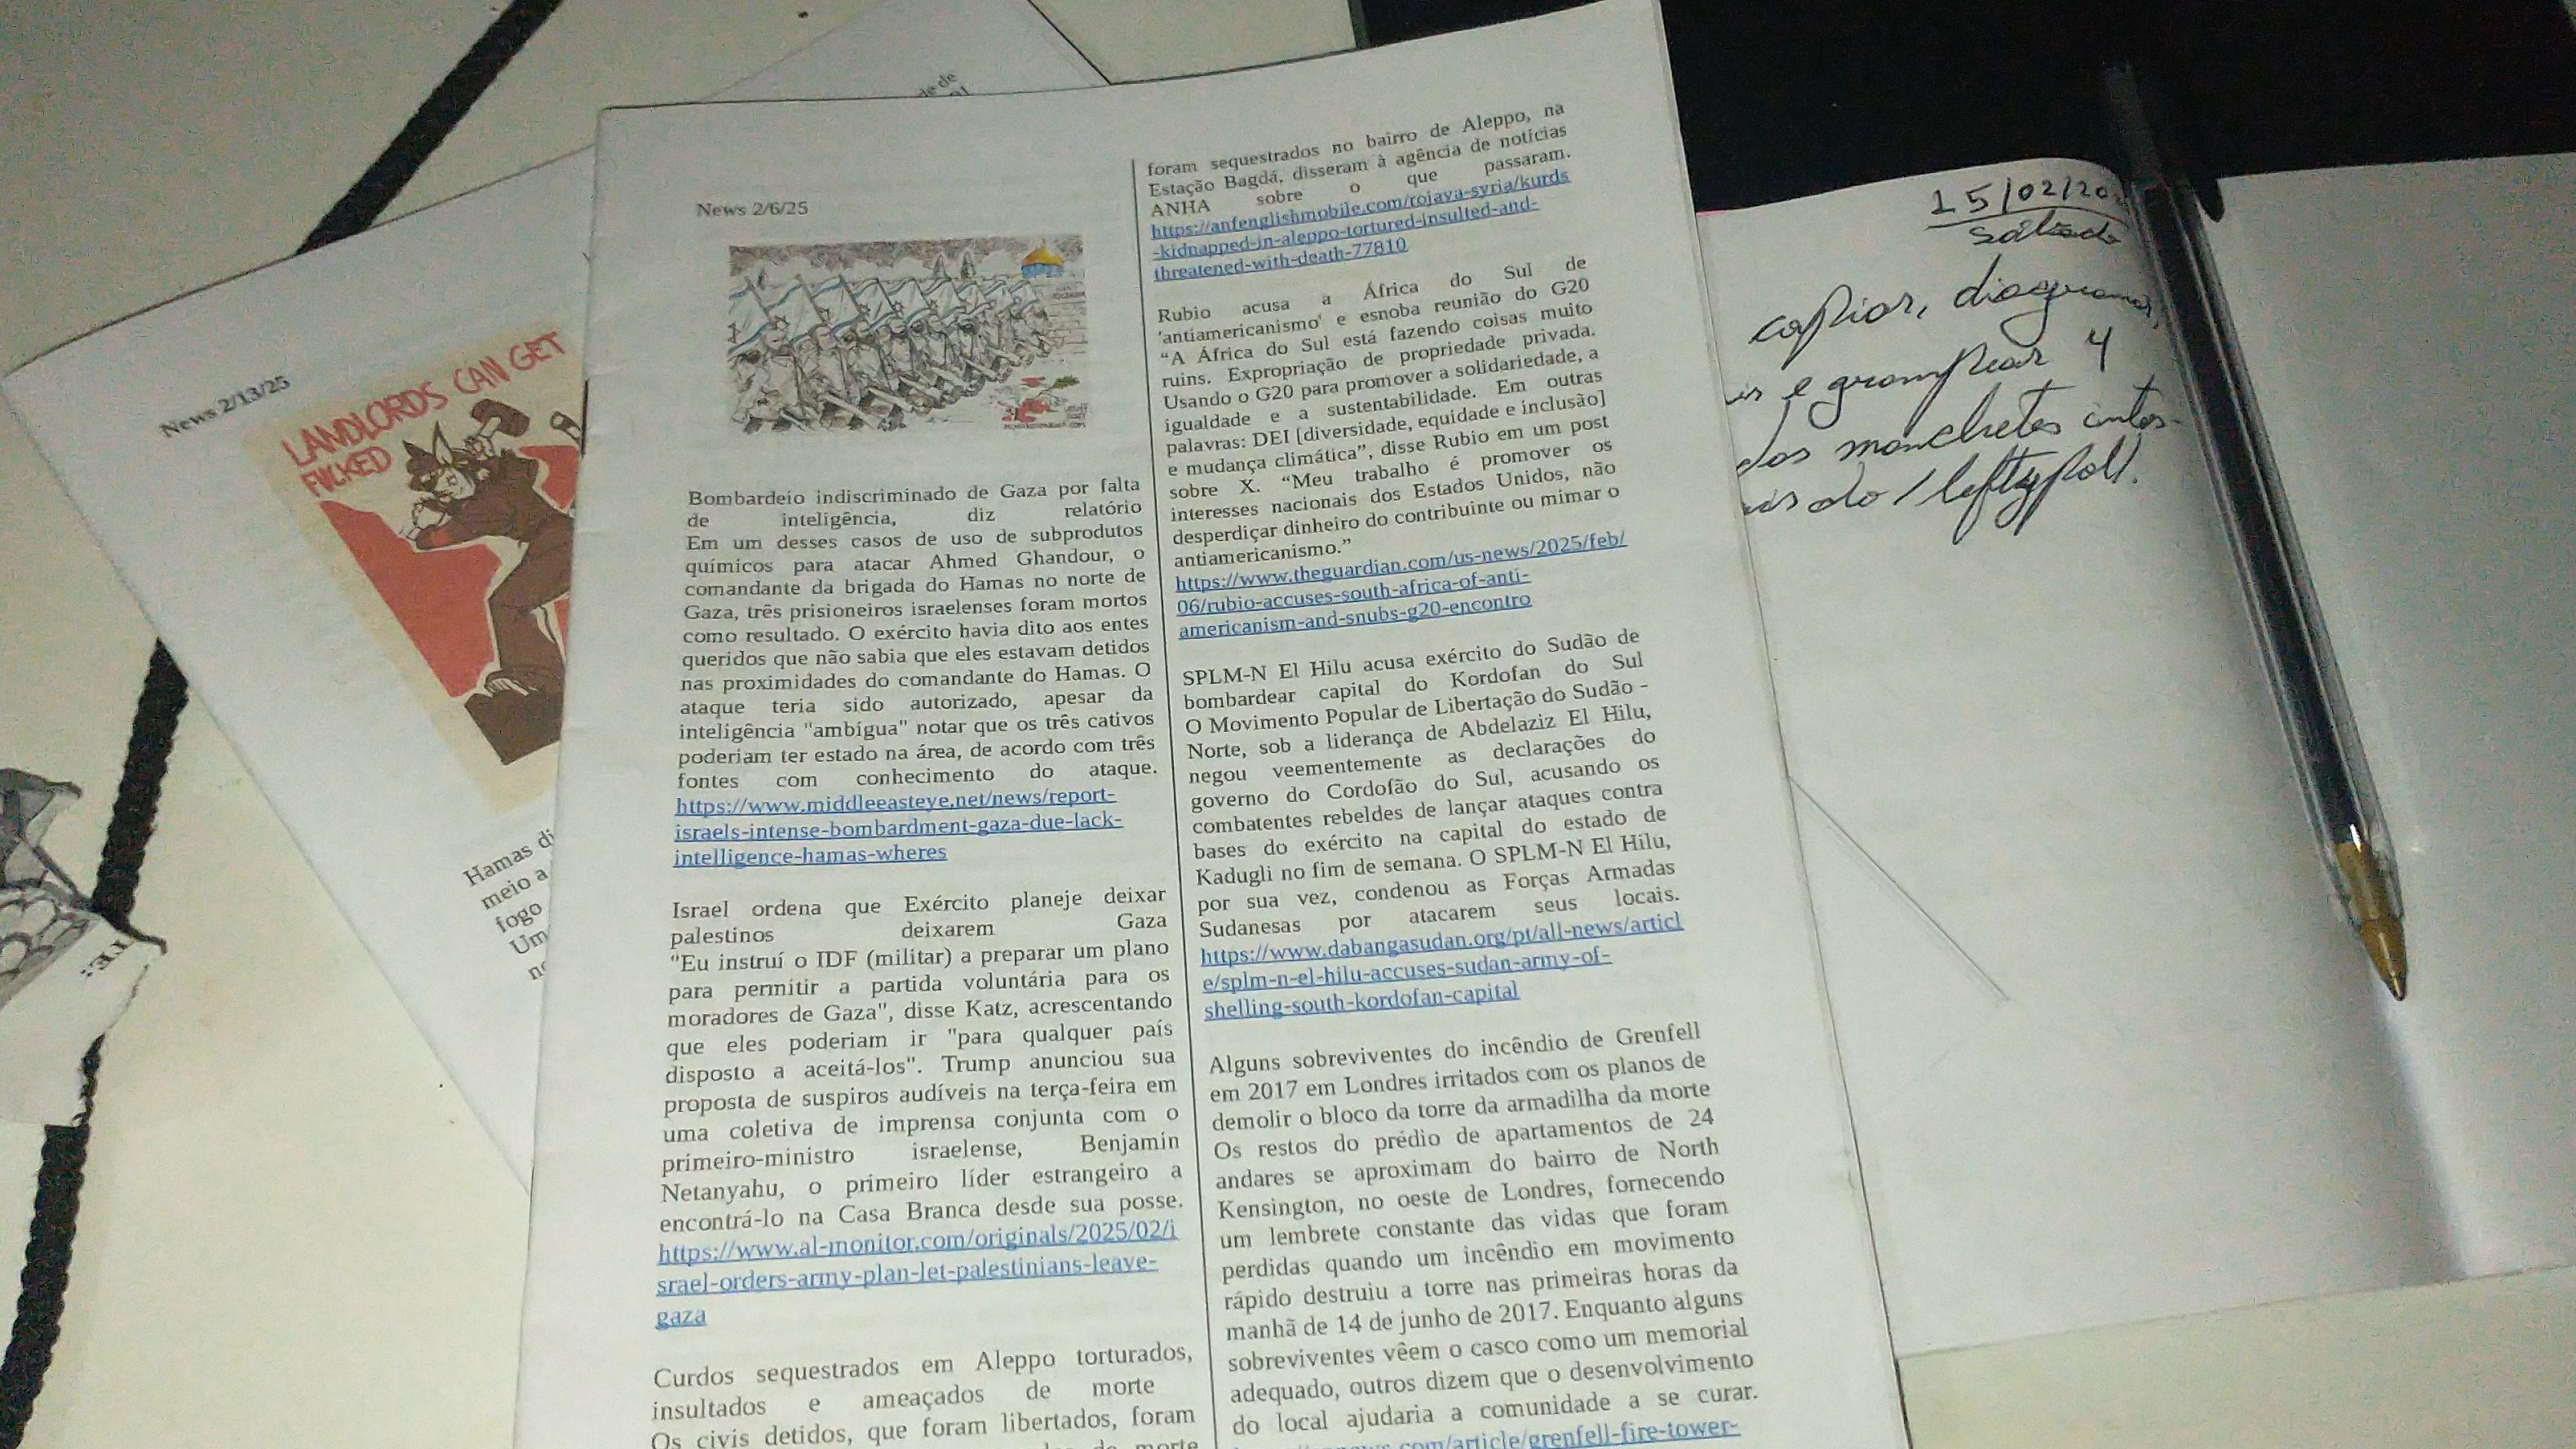 News 2/13/25
LANDLORDS CAN GET
FUCKED
Hamas di
meio a
fogo
Um
News 2/6/25
Bombardeio indiscriminado de Gaza por falta
de inteligência, diz relatório
Em um desses casos de uso de subprodutos
químicos para atacar Ahmed Ghandour, o
comandante da brigada do Hamas no norte de
Gaza, três prisioneiros israelenses foram mortos
como resultado. O exército havia dito aos entes
queridos que não sabia que eles estavam detidos
nas proximidades do comandante do Hamas. O
ataque teria sido autorizado, apesar da
inteligência "ambígua" notar que os três cativos
poderiam ter estado na área, de acordo com três
fontes com conhecimento do ataque.
https://www.middleeasteye.net/news/report-
israels-intense-bombardment-gaza-due-lack-
intelligence-hamas-wheres
Israel ordena que Exército planeje deixar
palestinos deixarem Gaza
"Eu instruí o IDF (militar) a preparar um plano
para permitir a partida voluntária para os
moradores de Gaza", disse Katz, acrescentando
que eles poderiam ir "para qualquer país
disposto a aceitá-los". Trump anunciou sua
proposta de suspiros audíveis na terça-feira em
uma coletiva de imprensa conjunta com o
primeiro-ministro israelense, Benjamin
Netanyahu, o primeiro líder estrangeiro a
encontrá-lo na Casa Branca desde sua posse.
https://www.al-monitor.com/originals/2025/02/i
srael-orders-army-plan-let-palestinians-leave-
gaza
Curdos sequestrados em Aleppo torturados,
insultados e ameaçados de morte
Os civis detidos, que foram libertados, foram
de morte
foram sequestrados no bairro de Aleppo, na
Estação Bagdá, disseram à agência de notícias
ANHA sobre o que passaram.
https://anfenglishmobile.com/rojava-syria/kurds
-kidnapped-in-aleppo-tortured-insulted-and-
threatened-with-death-77810
Rubio acusa a África do Sul de
'antiamericanismo' e esnoba reunião do G20
“A África do Sul está fazendo coisas muito
ruins. Expropriação de propriedade privada.
Usando o G20 para promover a solidariedade, a
igualdade e a sustentabilidade. Em outras
palavras: DEI [diversidade, equidade e inclusão]
e mudança climática”, disse Rubio em um post
sobre X. “Meu trabalho é promover os
interesses nacionais dos Estados Unidos, não
desperdiçar dinheiro do contribuinte ou mimar o
antiamericanismo.”
https://www.theguardian.com/us-news/2025/feb/
06/rubio-accuses-south-africa-of-anti-
americanism-and-snubs-g20-encontro
SPLM-N El Hilu acusa exército do Sudão de
bombardear capital do Kordofan do Sul
O Movimento Popular de Libertação do Sudão -
Norte, sob a liderança de Abdelaziz El Hilu,
negou veementemente as declarações do
governo do Cordofão do Sul, acusando os
combatentes rebeldes de lançar ataques contra
bases do exército na capital do estado de
Kadugli no fim de semana. O SPLM-N El Hilu,
por sua vez, condenou as Forças Armadas
Sudanesas por atacarem seus locais.
https://www.dabangasudan.org/pt/all-news/articl
e/splm-n-el-hilu-accuses-sudan-army-of-
shelling-south-kordofan-capital
Alguns sobreviventes do incêndio de Grenfell
em 2017 em Londres irritados com os planos de
demolir o bloco da torre da armadilha da morte
Os restos do prédio de apartamentos de 24
andares se aproximam do bairro de North
Kensington, no oeste de Londres, fornecendo
um lembrete constante das vidas que foram
perdidas quando um incêndio em movimento
rápido destruiu a torre nas primeiras horas da
manhã de 14 de junho de 2017. Enquanto alguns
sobreviventes vêem o casco como um memorial
adequado, outros dizem que o desenvolvimento
do local ajudaria a comunidade a se curar.
.com/article/grenfell-fire-tower-
15/02/20
sábado
copiar, diagramar,
e grampear 4
das manchetes
do /leftypol/.